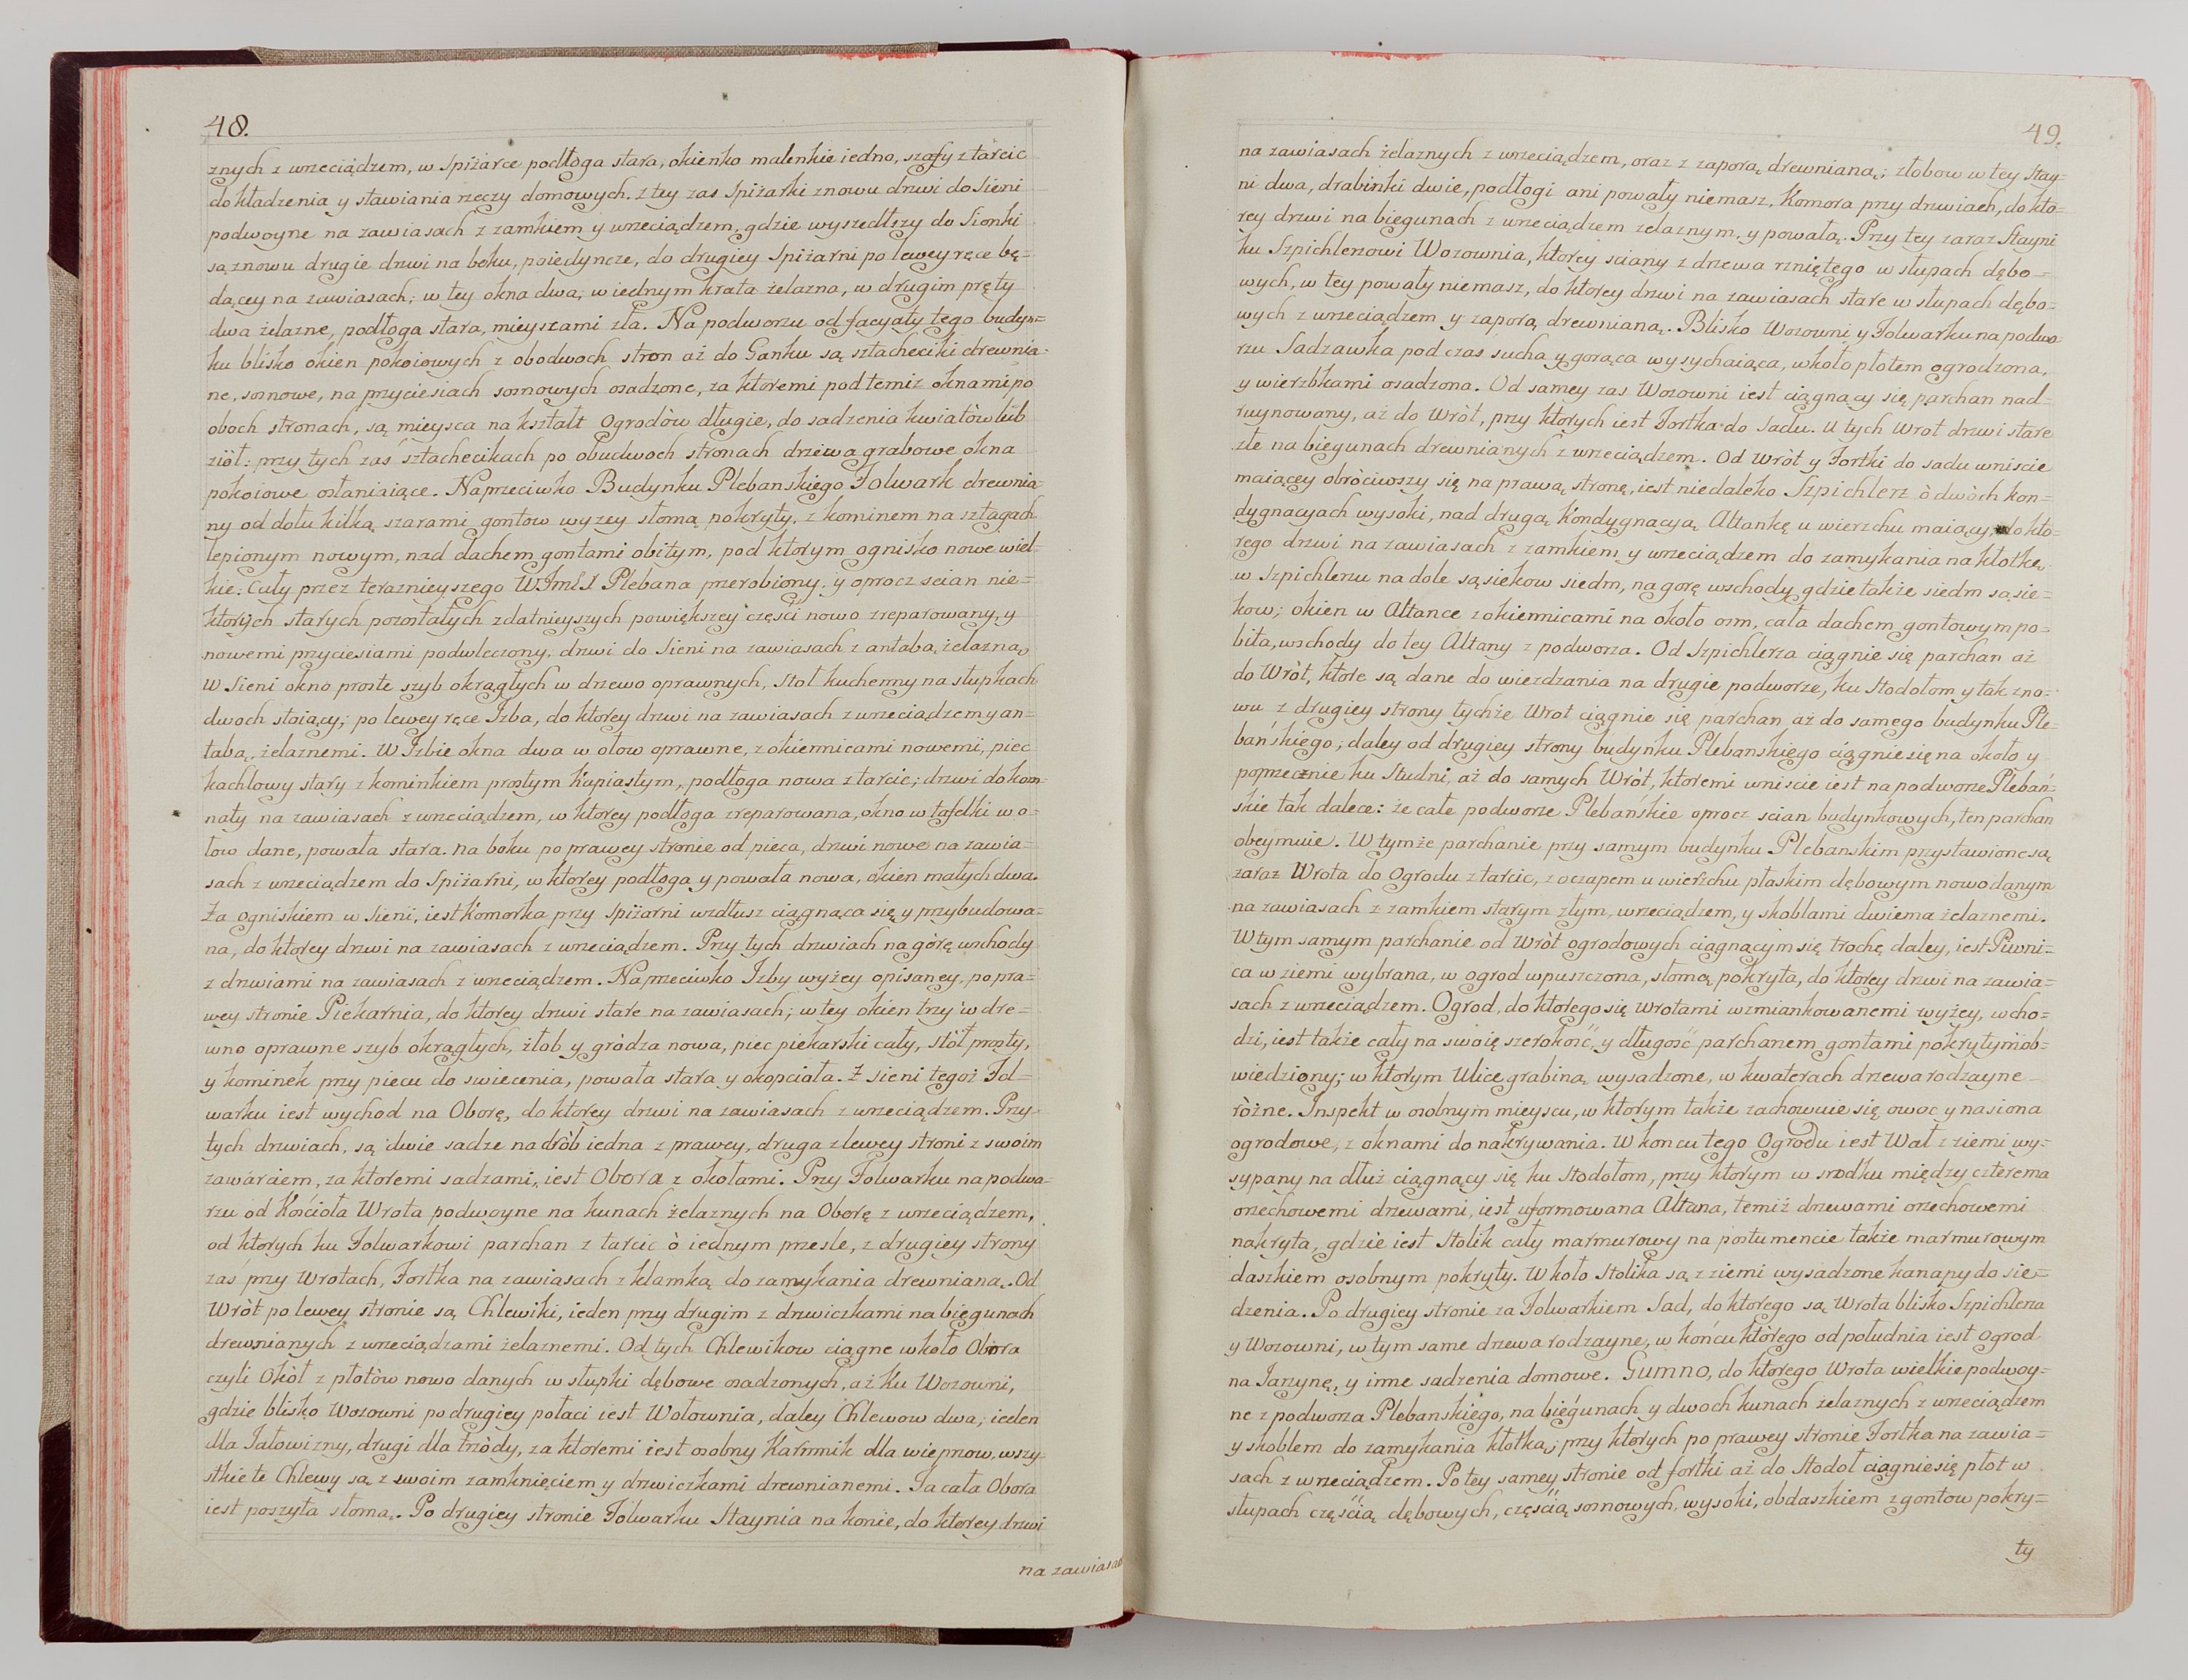 48.
znych z wrzeciądzem, w Spiżarce podłoga stara, okienko malenkie iedno, szafy z tarcic
do kładzenia y stawiania rzeczy domowych. z tey zas Spiżarki znowu drzwi do Sieni
podwoyne na zawiasach z zamkiem y wrzeciądzem, gdzie wyszedłszy do Sionki
są znowu drugie drzwi na boku, poiedyncze, do drugiey Spiżarni po lewey ręce bę=
dącey na zawiasach; w tey okna dwa, w iednym krata żelazna, w drugim pręty
dwa żelazne, podłoga stara, mieyscami zła. Na podworzu od facyaty tego budyn=
ku blisko okien pokoiowych z obodwoch stron aż do Ganku są sztacheciki drewnia-
ne, sosnowe, na przyciesiach sosnowych osadzone, za ktoremi pod temiż oknami po
oboch stronach, są mieysca na kształt Ogrodòw długie, do sadzenia kwiatòw lub
ziół: przy tych zaś sztachecikach po obudwoch stronach drzewa grabowe okna
pokoiowe osłaniaiące. Naprzeciwko Budynku Plebanskiego Folwark drewnia-
ny od dołu kilką szarami gontow wyzey słomą pokryty, z kominem na sztagach
lepionym nowym, nad dachem gontami obitym, pod ktorym ognisko nowe wiel-
kie: Cały przez teraznieyszego WJmci Plebana przerobiony, y oprocz scian nie=
ktorych starych pozostałych zdatnieyszych powiększey części nowo zreparowany, y
nowemi przyciesiami podwleczony, drzwi do Sieni na zawiasach z antabą żelazną,
W Sieni okno proste szyb okrągłych w drzewo oprawnych, Stoł kuchenny na słupkach
dwoch stoiący; po lewey ręce Izba, do ktorey drzwi na zawiasach z wrzeciądzem y an=
tabą, żelaznemi. W Izbie okna dwa w ołow oprawne, z okiennicami nowemi, piec
kachlowy stary z kominkiem prostym kapiastym, podłoga nowa z tarcic; drzwi do kom-
naty na zawiasach z wrzeciądzem, w ktorey podłoga zreparowana, okno w tafelki w o=
łow dane, powała stara. na boku po prawey stronie od pieca, drzwi nowe na zawia=
sach z wrzeciądzem do Spiżarni, w ktorey podłoga y powała nowa, okien małych dwa.
Za ogniskiem w Sieni, iest Komorka przy Spiżarni wzdłusz ciągnąca się y przybudowa=
na, do ktorey drzwi na zawiasach z wrzeciądzem. Przy tych drzwiach na górę wschody
z drzwiami na zawiasach z wrzeciądzem. Naprzeciwko Izby wyżey opisaney, po pra=
wey stronie Piekarnia, do ktorey drzwi stare na zawiasach; w tey okien trzy w dre=
wno oprawne szyb okrągłych, żłob y gròdza nowa, piec piekarski cały, stół prosty,
y kominek przy piecu do swiecenia, powała stara y okopciała. Z sieni tegoż Fol=
warku iest wychod na Oborę, do ktorey drzwi na zawiasach z wrzeciądzem. Przy
tych drzwiach, są dwie sadze na dròb iedna z prawey, druga z lewey stroni z swoim
zawarciem, za ktoremi sadzami, iest Obora z okołami. Przy Folwarku na podwo=
rzu od Kościoła Wrota podwoyne na kunach żelaznych na Oborę z wrzeciądzem,
od ktorych ku Folwarkowi parchan z tarcic ò iednym przesle, z drugiey strony
zaś przy Wrotach, Fortka na zawiasach z klamką do zamykania drewnianą. Od
Wròt po lewey stronie są Chlewiki, ieden przy drugim z drzwiczkami na biegunach
drewnianych z wrzeciądzami żelaznemi. Od tych Chlewikow ciągne wkoło Obora
czyli Okòł z płotòw nowo danych w słupki dębowe osadzonych, aż ku Wozowni,
gdzie blisko Wozowni po drugiey połaci iest Wołownia, daley Chlewow dwa; ieden
dla Jałowizny, drugi dla trzòdy, za ktoremi iest osobny Karmnik dla wieprzow, wszy-
stkie te Chlewy są z swoim zamknięciem y drzwiczkami drewnianemi. Ta cała Obora
iest poszyta słomą. Po drugiey stronie Folwarku Staynia na konie, do ktorey drzwi
na zawiasach
49.
na zawiasach żelaznych z wrzeciądzem, oraz z zaporą drewnianą; złobow w tey Stay-
ni dwa, drabinki dwie, podłogi ani powały niemasz, Komora przy drzwiach, do kto=
rey drzwi na biegunach z wrzeciądzem zelaznym, y powałą. Przy tey zaraz Stayni
ku Szpichlerzowi Wozownia, ktorey sciany z drzewa rzniętego w słupach dębo=
wych, w tey powały niemasz, do ktorey drzwi na zawiasach stare w słupach dębo-
wych z wrzeciądzem y zaporą drewnianą. Blisko Wozowni y Folwarku na podwo-
rzu Sadzawka pod czas sucha y gorąca wysychaiąca, wkoło płotem ogrodzona,
y wierzbkami osadzona. Od samey zas Wozowni iest ciągnący się parchan nad-
ruynowany, aż do Wròt, przy ktorych iest Fortka do Sadu. U tych Wrot drzwi stare
złe na biegunach drewnianych z wrzeciądzem. Od Wròt y Fortki do sadu wniscie
maiącey obròciwszy się na prawą stronę, iest niedaleko Szpichlerz ò dwòch kon=
dygnacyach wysoki, nad drugą Kondygnacyą Altankę u wierzchu maiący, do kto=
rego drzwi na zawiasach z zamkiem y wrzeciądzem do zamykania na kłotkę,
w Szpichlerzu na dole są siekow siedm, na gorę wschody gdzie także siedm są sie=
kow; okien w Altance z okiennicami na około osm, cała dachem gontowym po=
bita, wschody do tey Altany z podworza. Od Szpichlerza ciągnie się parchan aż
do Wròt, ktore są dane do wiezdzania na drugie podworze, ku Stodołom y tak zno=
wu z drugiey strony tychże Wrot ciągnie się parchan aż do samego budynku Ple-
bańskiego; daley od drugiey strony budynku Plebanskiego ciągnie się na około y
poprzecznie ku Studni, aż do samych Wròt, ktoremi wniscie iest na podworze Plebań-
skie tak dalece: że całe podworze Plebańskie oprocz scian budynkowych, ten parchan
obeymuie. W tymże parchanie przy samym budynku Plebanskim przystawione są
zaraz Wrota do Ogrodu z tarcic, z oczapem u wierzchu płaskim dębowym nowo danym
na zawiasach z zamkiem starym złym, wrzeciądzem, y skoblami dwiema żelaznemi.
W tym samym parchanie od Wròt ogrodowych ciągnącym się trochę daley, iest Piwni=
ca w ziemi wybrana, w ogrod wpuszczona, słomą pokryta, do ktorey drzwi na zawia=
sach z wrzeciądzem. Ogrod, do ktorego się Wrotami wzmiankowanemi wyżey, wcho=
dzi, iest także cały na swoię szerokość y długość parchanem gontami pokrytym ob=
wiedziony; w ktorym Ulice grabiną wysadzone, w kwaterach drzewa rodzayne
ròżne. Inspekt w osobnym mieyscu, w ktorym także zachowuie się owoc y nasiona
ogrodowe, z oknami do nakrywania. W koncu tego Ogrodu iest Wał z ziemi wy=
sypany na dłuż ciągnący się ku Stodołom, przy ktorym w srodku między czterema
orzechowemi drzewami, iest uformowana Altana, temiż drzewami orzechowemi
nakryta, gdzie iest Stolik cały marmurowy na postumencie także marmurowym
daszkiem osobnym pokryty. W koło Stolika są z ziemi wysadzone kanapy do sie=
dzenia. Po drugiey stronie za Folwarkiem Sad, do ktorego są Wrota blisko Szpichlerza
y Wozowni, w tym same drzewa rodzayne, w końcu ktòrego od południa iest Ogrod
na Jarzynę, y inne sadzenia domowe. Gumno, do ktorego Wrota wielkie podwoy=
ne z podworza Plebanskiego, na biegunach y dwoch kunach żelaznych z wrzeciądzem
y skoblem do zamykania kłotką; przy ktorych po prawey stronie Fortka na zawia=
sach z wrzeciądzem. Po tey samey stronie od fortki aż do Stodoł ciągnie się płot w
słupach częścią dębowych, częścią sosnowych, wysoki, obdaszkiem z gontow pokry=
ty